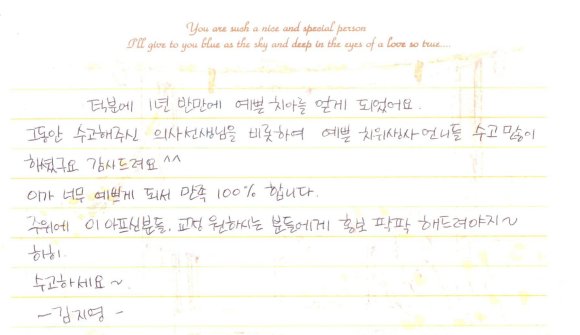 You are such a nice and special person
I'll give to you blue as the sky and deep in the eyes of a love so true....
덕분에 1년 반만에 예쁜 치아를 얻게 되었어요.
그동안 수고해주신 의사선생님을 비롯하여 예쁜 치위생사 언니들 수고 많이
하셨구요 감사드려요 ^^
이가 너무 예쁘게 되서 만족 100% 합니다.
주위에 이 아프신분들, 교정 원하시는 분들에게 홍보 팍팍 해드려야지~
하히.
수고하세요~.
- 김지영 -